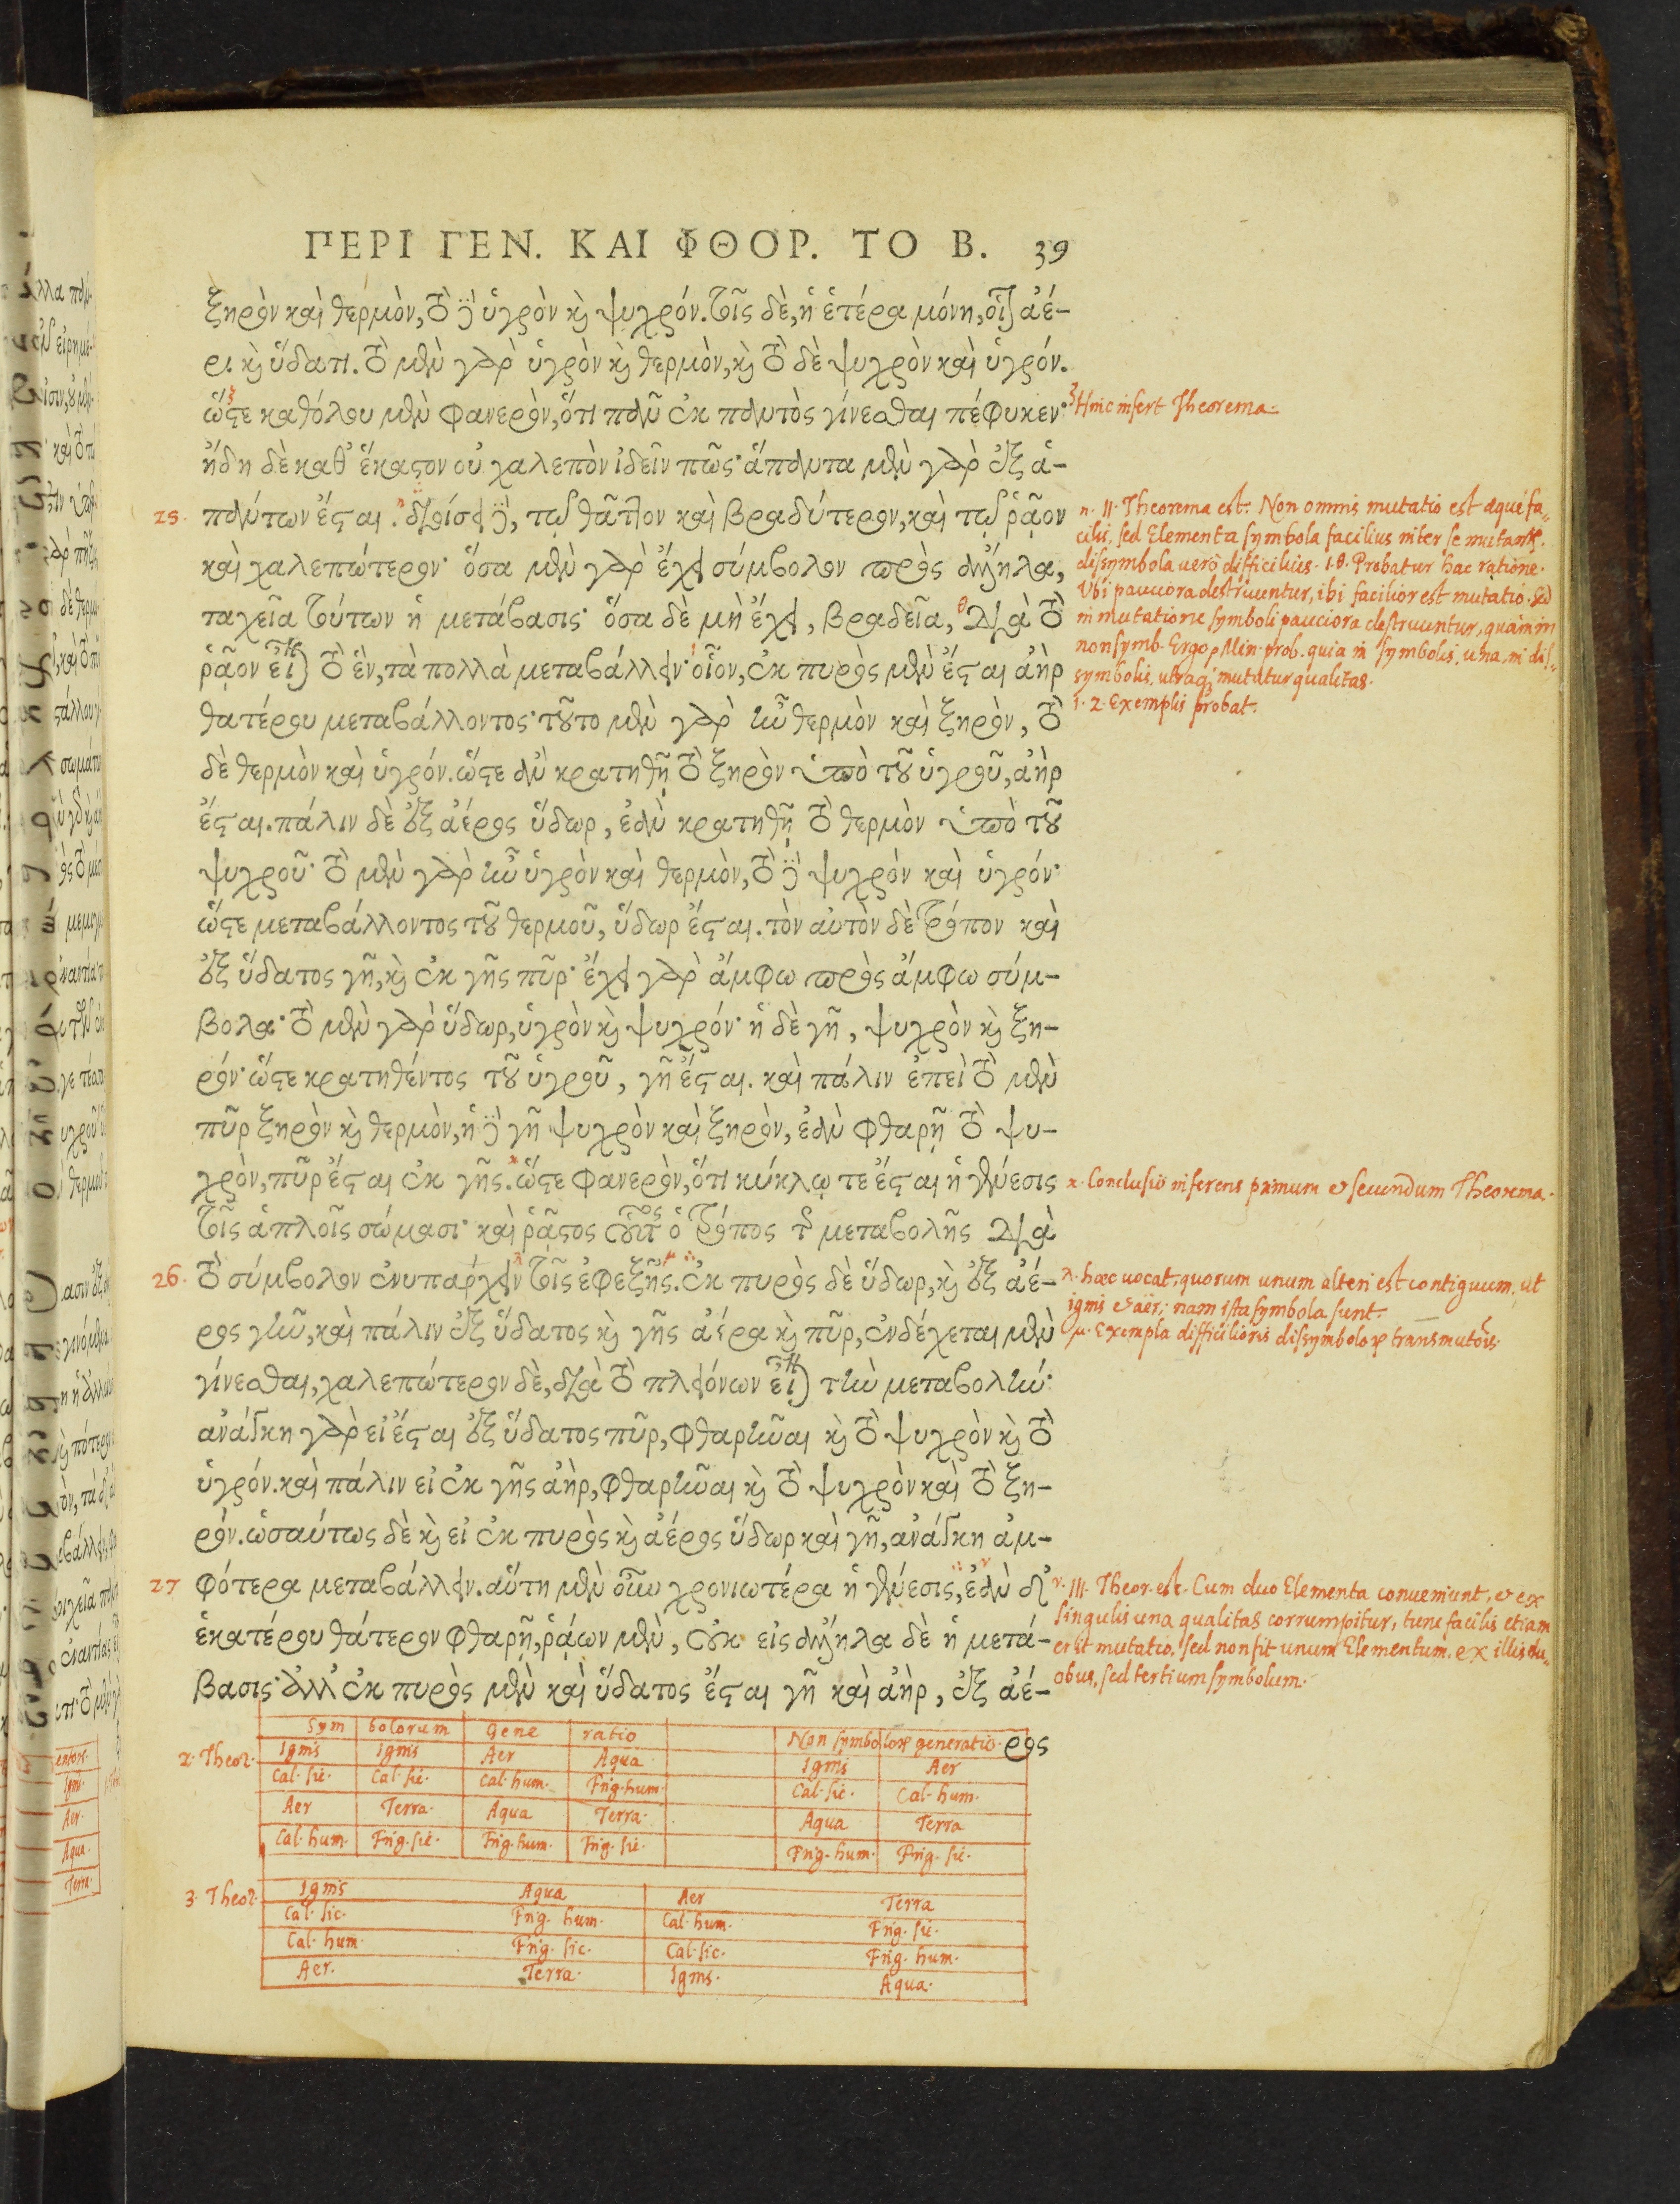 ΠΕΡΙ ΓΕΝ. ΚΑΙ ΦΘΟΡ. ΤΟ Β. 39
ξηρὸν καὶ θερμὸν, τὸ δὲ ὑγρὸν καὶ ψυχρόν. τοῖς δὲ, ἡ ἑτέρα μόνη, οἷον ἀέ-
ρι καὶ ὕδατι. τὸ μὲν γὰρ ὑγρὸν καὶ θερμὸν, καὶ τὸ δὲ ψυχρὸν καὶ ὑγρόν.
ὥστε καθόλου μὲν φανερὸν, ὅτι πᾶν ἐκ παντὸς γίνεσθαι πέφυκεν·
ξ Hinc infert Theorema.
ἤδη δὲ καθ' ἕκαστον οὐ χαλεπὸν ἰδεῖν πῶς· ἅπαντα μὲν γὰρ ἐξ ἁ-
25. πάντων ἔσται. διοίσει δὲ, τῷ θᾶττον καὶ βραδύτερον, καὶ τῷ ῥᾷον
καὶ χαλεπώτερον· ὅσα μὲν γὰρ ἔχει σύμβολον πρὸς ἄλληλα,
ταχεῖα τούτων ἡ μετάβασις· ὅσα δὲ μὴ ἔχει, βραδεῖα, διὰ τὸ
ῥᾷον εἶναι τὸ ἓν, τὰ πολλὰ μεταβάλλειν· οἷον, ἐκ πυρὸς μὲν ἔσται ἀὴρ
θατέρου μεταβάλλοντος· τοῦτο μὲν γὰρ ἦν θερμὸν καὶ ξηρὸν, τὸ
δὲ θερμὸν καὶ ὑγρόν. ὥστε ἂν κρατηθῇ τὸ ξηρὸν ὑπὸ τοῦ ὑγροῦ, ἀὴρ
ἔσται. πάλιν δὲ ἐξ ἀέρος ὕδωρ, ἐὰν κρατηθῇ τὸ θερμὸν ὑπὸ τοῦ
ψυχροῦ· τὸ μὲν γὰρ ἦν ὑγρὸν καὶ θερμὸν, τὸ δὲ ψυχρὸν καὶ ὑγρόν·
ὥστε μεταβάλλοντος τοῦ θερμοῦ, ὕδωρ ἔσται. τὸν αὐτὸν δὲ τρόπον καὶ
ἐξ ὕδατος γῆ, καὶ ἐκ γῆς πῦρ· ἔχει γὰρ ἄμφω πρὸς ἄμφω σύμ-
βολα· τὸ μὲν γὰρ ὕδωρ, ὑγρὸν καὶ ψυχρόν· ἡ δὲ γῆ, ψυχρὸν καὶ ξη-
ρόν· ὥστε κρατηθέντος τοῦ ὑγροῦ, γῆ ἔσται. καὶ πάλιν ἐπεὶ τὸ μὲν
πῦρ ξηρὸν καὶ θερμὸν, ἡ δὲ γῆ ψυχρὸν καὶ ξηρὸν, ἐὰν φθαρῇ τὸ ψυ-
χρὸν, πῦρ ἔσται ἐκ γῆς. ὥστε φανερὸν, ὅτι κύκλῳ τε ἔσται ἡ γένεσις
τοῖς ἁπλοῖς σώμασι· καὶ ῥᾷστος οὗτος ὁ τρόπος τῆς μεταβολῆς διὰ
26. τὸ σύμβολον ἐνυπάρχειν τοῖς ἐφεξῆς. ἐκ πυρὸς δὲ ὕδωρ, καὶ ἐξ ἀέ-
ρος γῆν, καὶ πάλιν ἐξ ὕδατος καὶ γῆς ἀέρα καὶ πῦρ, ἐνδέχεται μὲν
γίνεσθαι, χαλεπώτερον δὲ, διὰ τὸ πλειόνων εἶναι τὴν μεταβολήν·
ἀνάγκη γὰρ εἰ ἔσται ἐξ ὕδατος πῦρ, φθαρῆναι καὶ τὸ ψυχρὸν καὶ τὸ
ὑγρόν. καὶ πάλιν εἰ ἐκ γῆς ἀὴρ, φθαρῆναι καὶ τὸ ψυχρὸν καὶ τὸ ξη-
ρόν. ὡσαύτως δὲ καὶ εἰ ἐκ πυρὸς καὶ ἀέρος ὕδωρ καὶ γῆ, ἀνάγκη ἀμ-
27 φότερα μεταβάλλειν. αὕτη μὲν οὖν χρονιωτέρα ἡ γένεσις, ἐὰν δ'
ἑκατέρου θάτερον φθαρῇ, ῥᾴων μὲν, οὐκ εἰς ἄλληλα δὲ ἡ μετά-
βασις· ἀλλ' ἐκ πυρὸς μὲν καὶ ὕδατος ἔσται γῆ καὶ ἀὴρ, ἐξ ἀέ-
ρος
η. II. Theorema est. Non omnis mutatio est aequè fa-
cilis, sed Elementa symbola facilius inter se mutantur.
dissymbola verò difficilius. 1.θ. Probatur hac ratione.
Ubi pauciora destruuntur, ibi facilior est mutatio. sed
in mutatione symboli pauciora destruuntur, quàm in
non symb. Ergo, Min. prob. quia in symbolis, una, in dis-
symbolis, utraque mutatur qualitas.
1. 2. Exemplis probat.
κ. Conclusio inferens primum et secundum Theorema.
λ. haec vocat, quorum unum alteri est contiguum, ut
ignis et aër; nam ista symbola sunt.
μ. Exempla difficilioris dissymbolorum transmutationis.
ν. III. Theor. est. Cum duo Elementa conveniunt, et ex
singulis una qualitas corrumpitur, tunc facilis etiam
erit mutatio. sed non fit unum Elementum ex illis du-
obus, sed tertium symbolum.
Sym bolorum Gene ratio Non symbolorum generatio.
2. Theor. Ignis Ignis Aer Aqua Ignis Aer
Cal. sic. Cal. sic. Cal. hum. Frig. hum. Cal. sic. Cal. hum.
Aer Terra. Aqua Terra. Aqua Terra
Cal. hum. Frig. sic. Frig. hum. Frig. sic. Frig. hum. Frig. sic.
3. Theor. Ignis Aqua Aer Terra
Cal. sic. Frig. hum. Cal. hum. Frig. sic.
Cal. hum. Frig. sic. Cal. sic. Frig. hum.
Aer. Terra. Ignis. Aqua.